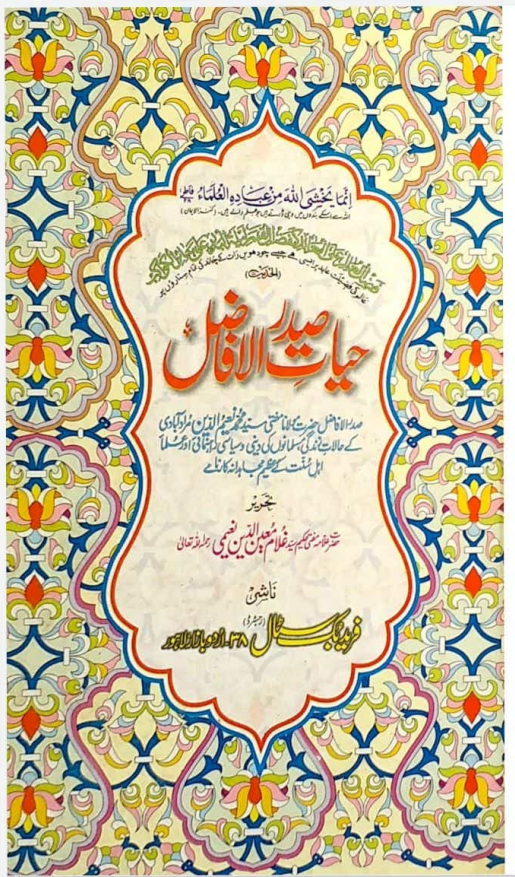 اِنَّمَا يَخْشَى اللّٰهَ مِنْ عِبَادِهِ الْعُلَمَاءُ
اللہ سے اسکے بندوں میں وہی ڈرتے ہیں جو علم والے ہیں۔ (کنزالایمان)
(الحدیث)
حیاتِ صدر الافاضل
صدر الافاضل حضرت مولانا مفتی سید محمد نعیم الدین مرادآبادی
کے حالاتِ زندگی، مسلمانوں کی دینی و سیاسی راہنمائی اور علما
اہلِ سُنّت کے عظیم مجاہدانہ کارنامے
تحریر
حضرت علامہ مفتی حکیم سید غلام معین الدین نعیمی رحمۃ اللہ تعالیٰ
ناشر
فرید بک سٹال (رجسٹرڈ) ۳۸۔ اردو بازار لاہور